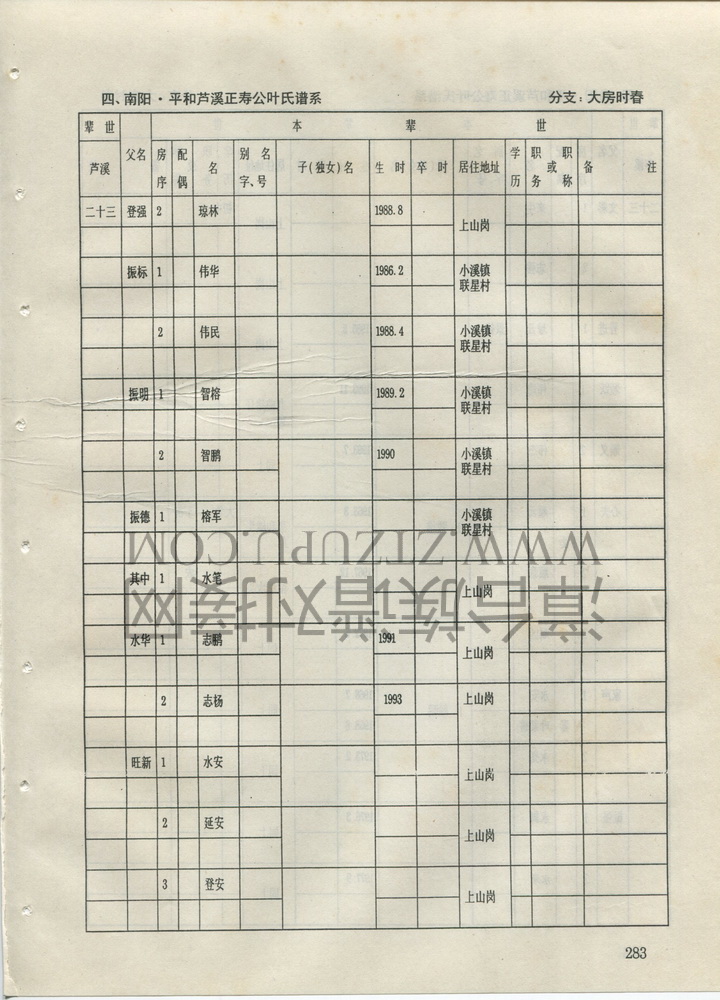 四、南阳·平和芦溪正寿公叶氏谱系 分支：大房时春
辈世 本辈世
芦溪 父名 房序 配偶 名 别名字、号 子(独女)名 生时 卒时 居住地址 学历 职务或职称 备注
二十三 登强 2 琼林 1988.8 上山岗
振标 1 伟华 1986.2 小溪镇联星村
2 伟民 1988.4 小溪镇联星村
振明 1 智榕 1989.2 小溪镇联星村
2 智鹏 1990 小溪镇联星村
振德 1 榕军 小溪镇联星村
WWW.ZTZUPU.COM
其中 1 水笔 上山岗
漳台族谱对接网
水华 1 志鹏 1991 上山岗
2 志杨 1993 上山岗
旺新 1 水安 上山岗
2 延安 上山岗
3 登安 上山岗
283